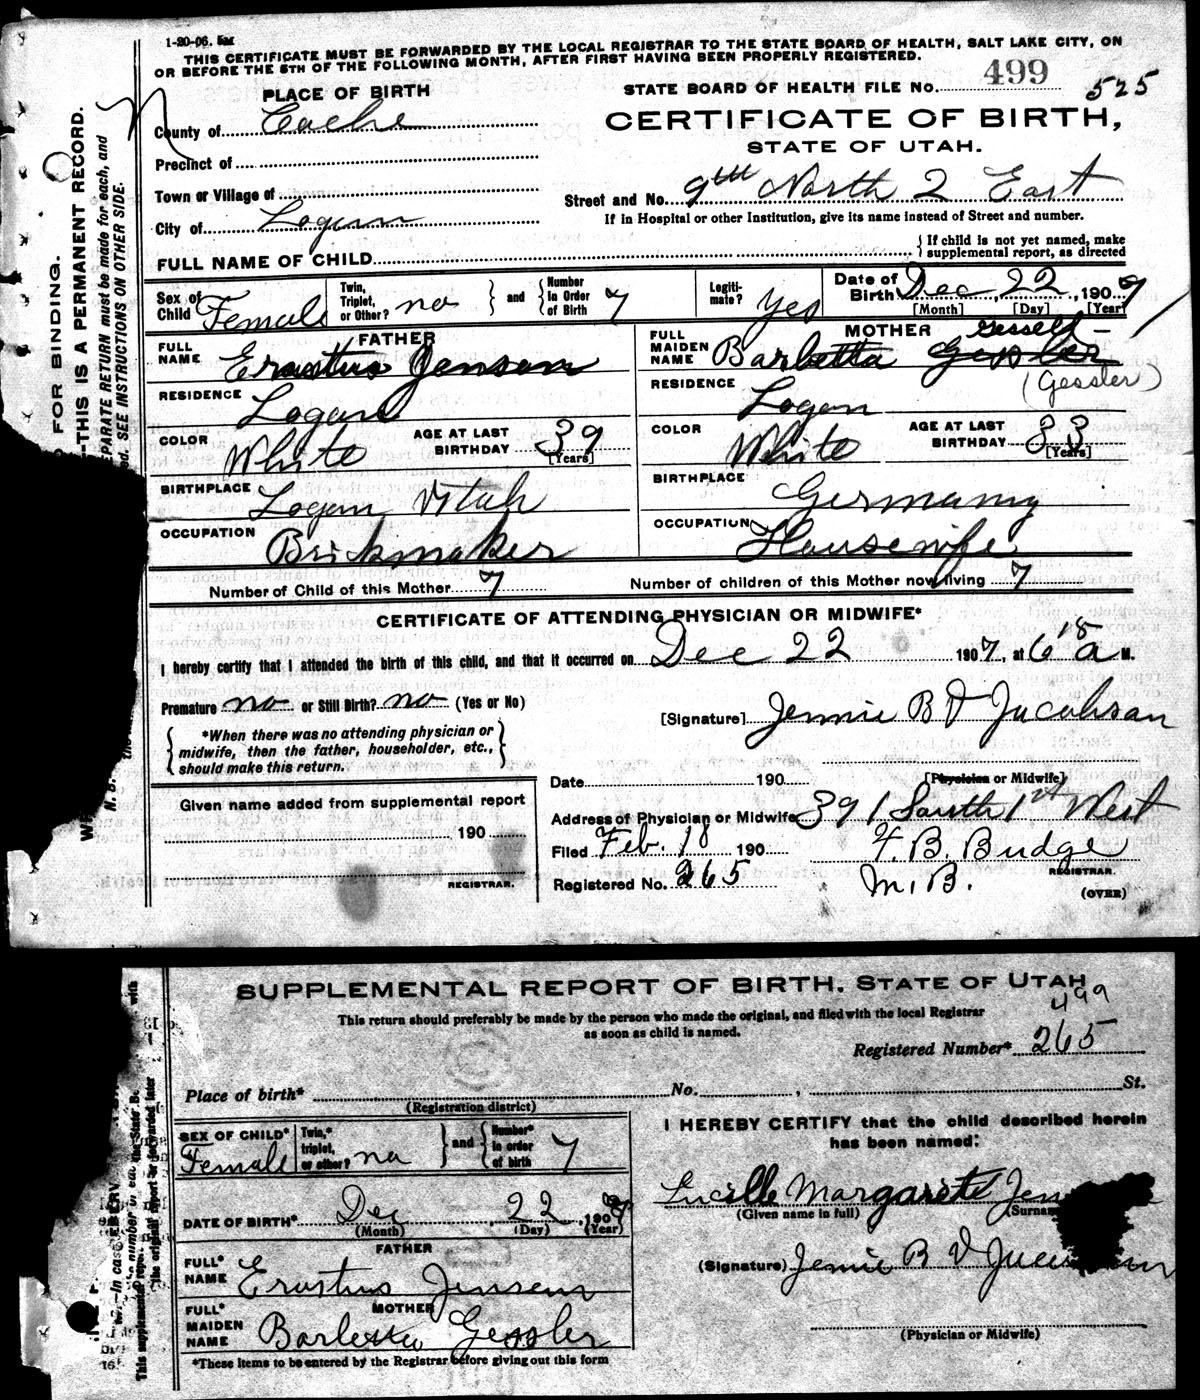 1-20-06.
THIS CERTIFICATE MUST BE FORWARDED BY THE LOCAL REGISTRAR TO THE STATE BOARD OF HEALTH, SALT LAKE CITY, ON
OR BEFORE THE 5TH OF THE FOLLOWING MONTH, AFTER FIRST HAVING BEEN PROPERLY REGISTERED.
STATE BOARD OF HEALTH FILE NO. 499 525
PLACE OF BIRTH
County of Cache
CERTIFICATE OF BIRTH,
STATE OF UTAH.
Precinct of
Town or Village of
Street and No. 9th North 2 East
If in Hospital or other Institution, give its name instead of Street and number.
City of Logan
FULL NAME OF CHILD
{ If child is not yet named, make supplemental report, as directed
Sex of Child Female Twin, Triplet, or Other? no } and { Number in Order of Birth 7 Legiti-mate? Yes Date of Birth Dec 22, 1907
[Month] [Day] [Year]
FATHER
FULL NAME Erastus Jensen
MOTHER
FULL MAIDEN NAME Barbetta Gessler Gessell
(Gessler)
RESIDENCE Logan
RESIDENCE Logan
COLOR White AGE AT LAST BIRTHDAY 39 [Years]
COLOR White AGE AT LAST BIRTHDAY 33 [Years]
BIRTHPLACE Logan Utah
BIRTHPLACE Germany
OCCUPATION Brickmaker
OCCUPATION Housewife
Number of Child of this Mother 7 Number of children of this Mother now living 7
CERTIFICATE OF ATTENDING PHYSICIAN OR MIDWIFE*
I hereby certify that I attended the birth of this child, and that it occurred on Dec 22 1907, at 6 18 a M.
Premature no or Still Birth? no (Yes or No)
[Signature] Jennie B D Jacobson
{ *When there was no attending physician or midwife, then the father, householder, etc., should make this return. }
[Physician or Midwife]
Date 190
Given name added from supplemental report
190
REGISTRAR.
Address of Physician or Midwife 391 South 1st West
Filed Feb. 18 190 F. B. Budge
Registered No. 265 M. B. REGISTRAR.
(OVER)
FOR BINDING.
THIS IS A PERMANENT RECORD.
PARATE RETURN must be made for each, and
SEE INSTRUCTIONS ON OTHER SIDE.
N. B.
SUPPLEMENTAL REPORT OF BIRTH. STATE OF UTAH
This return should preferably be made by the person who made the original, and filed with the local Registrar
as soon as child is named.
499
Registered Number* 265
Place of birth* No. , St.
(Registration district)
SEX OF CHILD* Female Twin,* triplet, or other? no } and { Number* in order of birth 7
DATE OF BIRTH* Dec 22, 190
(Month) (Day) (Year)
FATHER
FULL* NAME Erastus Jensen
MOTHER
FULL* MAIDEN NAME Barbetta Gessler
*These items to be entered by the Registrar before giving out this form
I HEREBY CERTIFY that the child described herein
has been named:
Lucille Margarete Jen
(Given name in full) (Surnam
(Signature) Jennie B D
(Physician or Midwife)